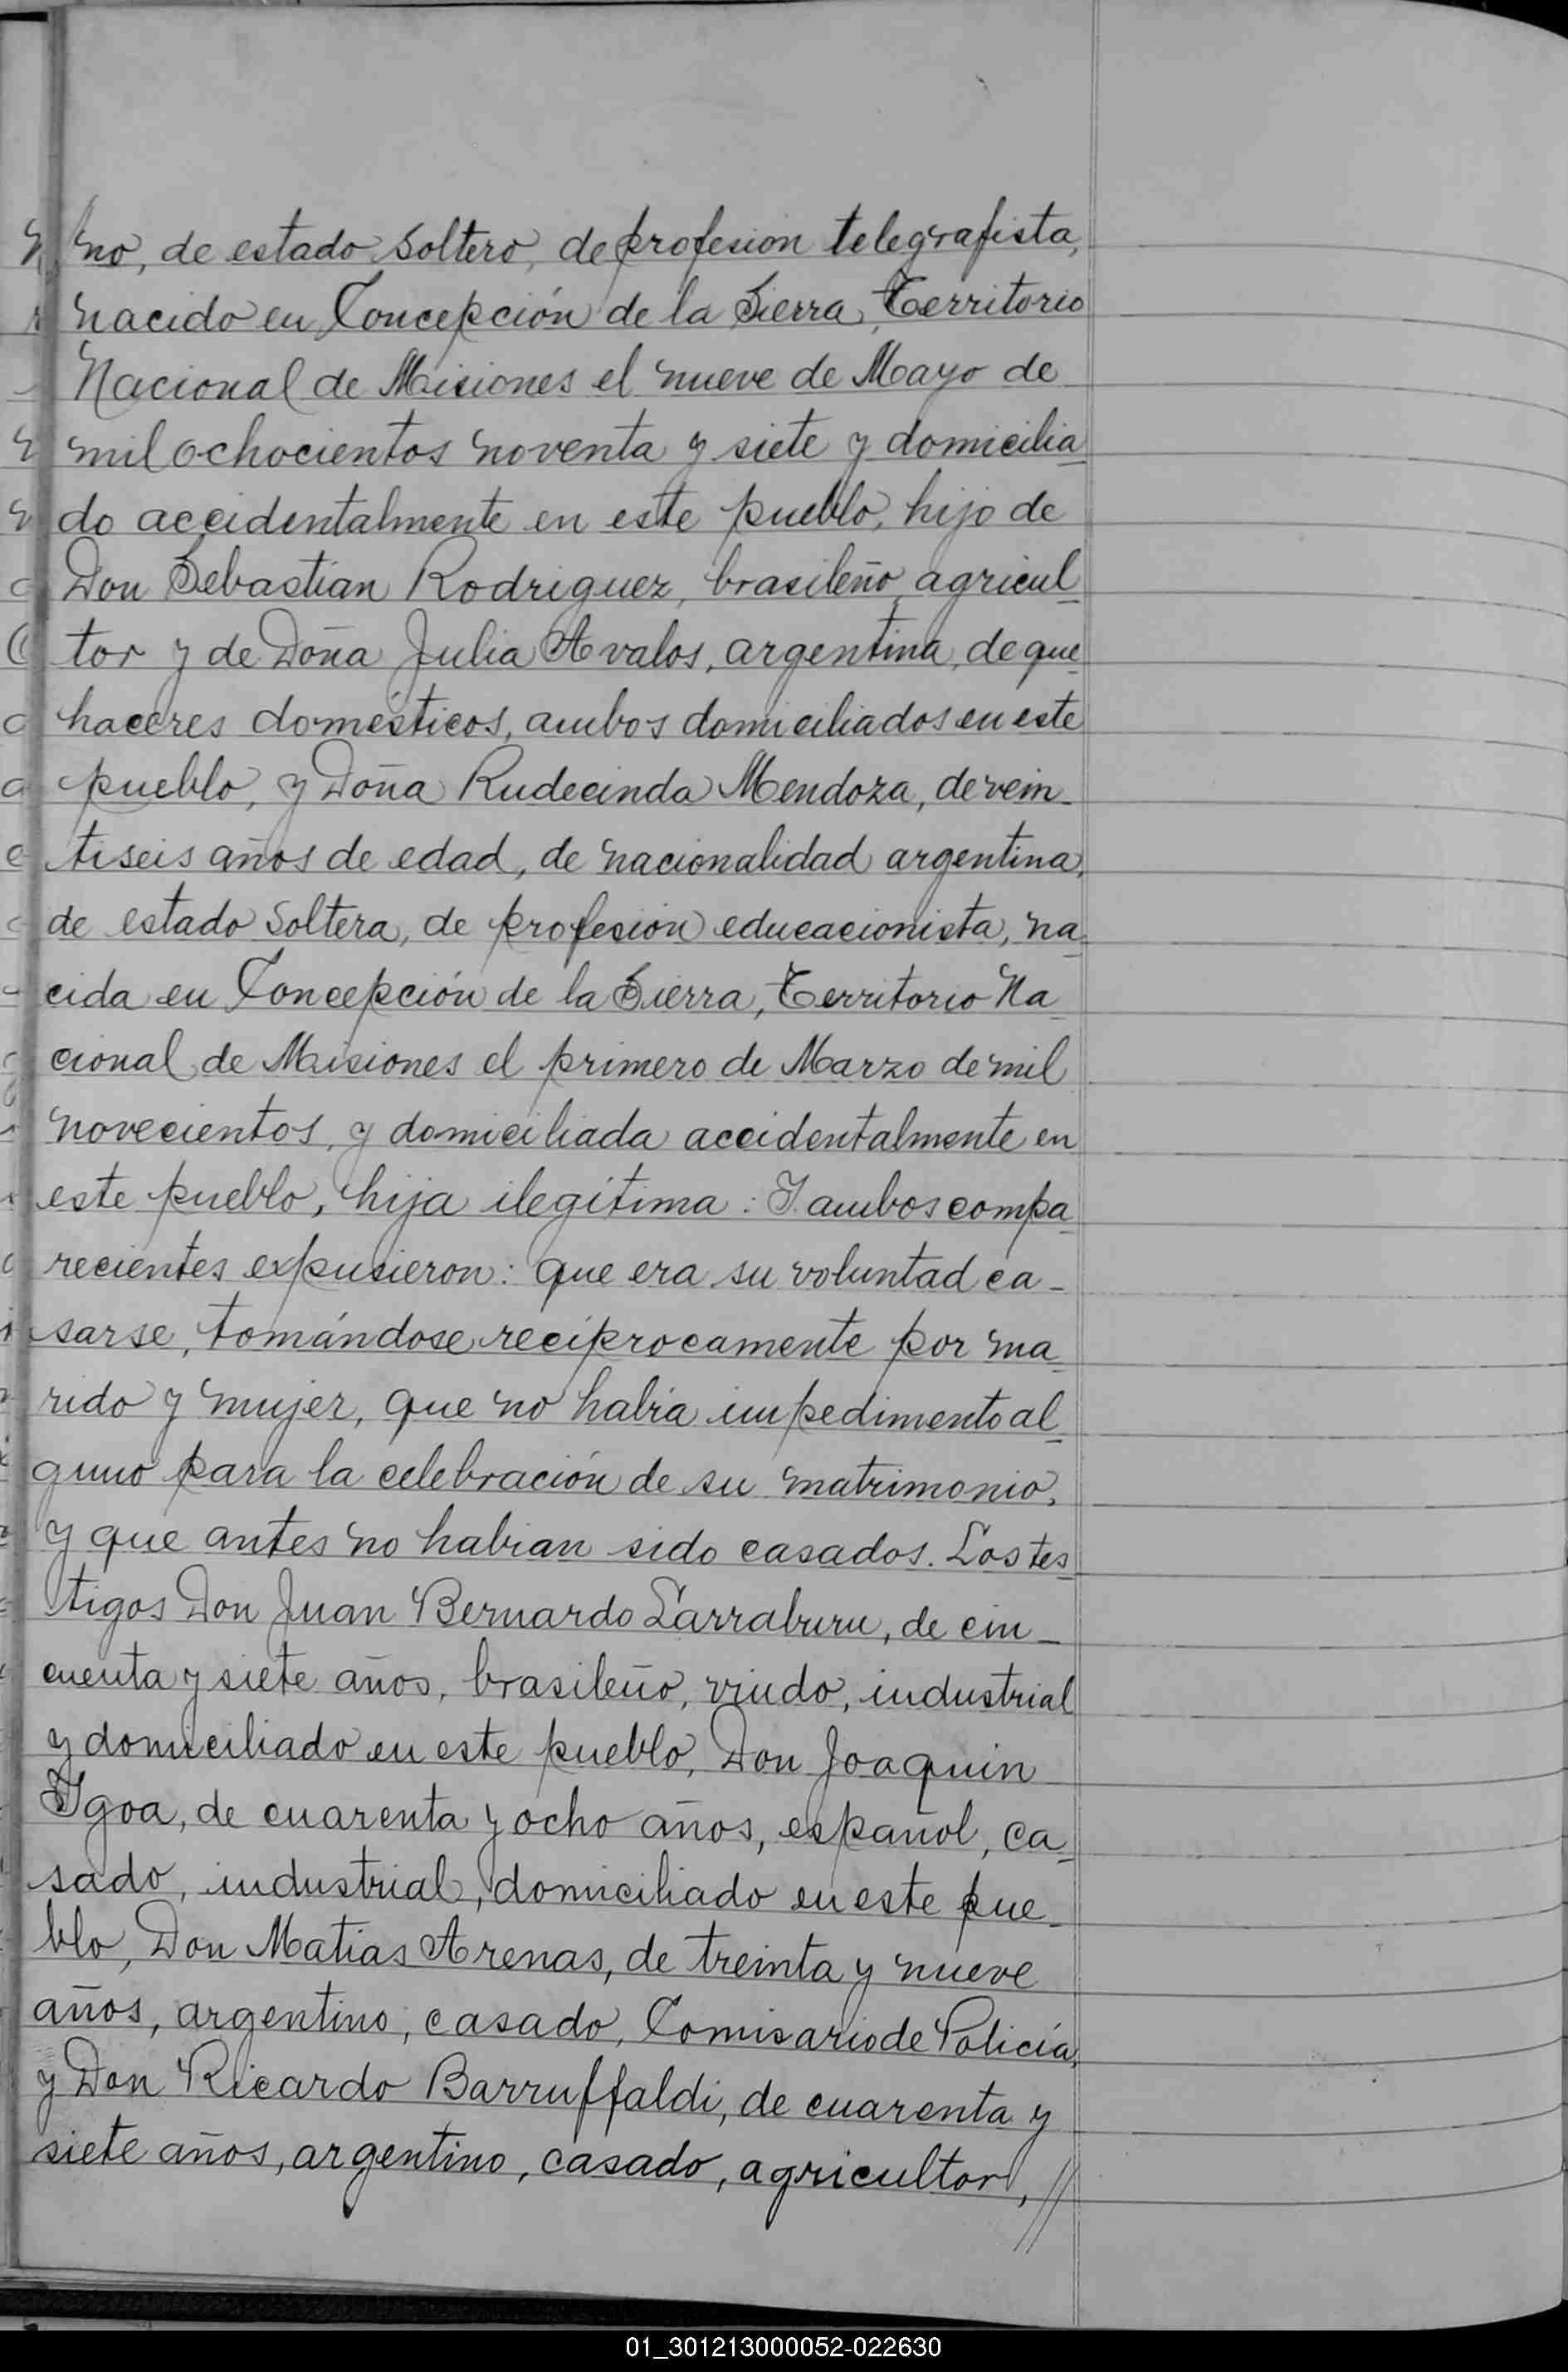 no, de estado soltero, de profesion telegrafista,
nacido en Concepción de la Sierra, Territorio
Nacional de Misiones el nueve de Mayo de
mil ochocientos noventa y siete y domicilia
do accidentalmente en este pueblo, hijo de
Don Sebastian Rodriguez, brasileño, agricul
tor y de Doña Julia Avalos, argentina, de que
haceres domésticos, ambos domiciliados en este
pueblo, y Doña Rudecinda Mendoza, de vein-
tiseis años de edad, de nacionalidad argentina,
de estado soltera, de profesión educacionista, na
cida en Concepción de la Sierra, Territorio Na
cional de Misiones el primero de Marzo de mil
novecientos, y domiciliada accidentalmente en
este pueblo, hija ilegítima: Y ambos compa
recientes expusieron: que era su voluntad ca-
sarse, tomándose recíprocamente por ma
rido y mujer, que no habia impedimento al
guno para la celebración de su matrimonio,
y que antes no habian sido casados. Los tes
tigos Don Juan Bernardo Larraburu, de cin-
cuenta y siete años, brasileño, viudo, industrial
y domiciliado en este pueblo, Don Joaquin
Igoa, de cuarenta y ocho años, español, ca
sado, industrial, domiciliado en este pue-
blo, Don Matias Arenas, de treinta y nueve
años, argentino, casado, Comisario de Policía,
y Don Ricardo Barruffaldi, de cuarenta y
siete años, argentino, casado, agricultor, //
01_301213000052-022630